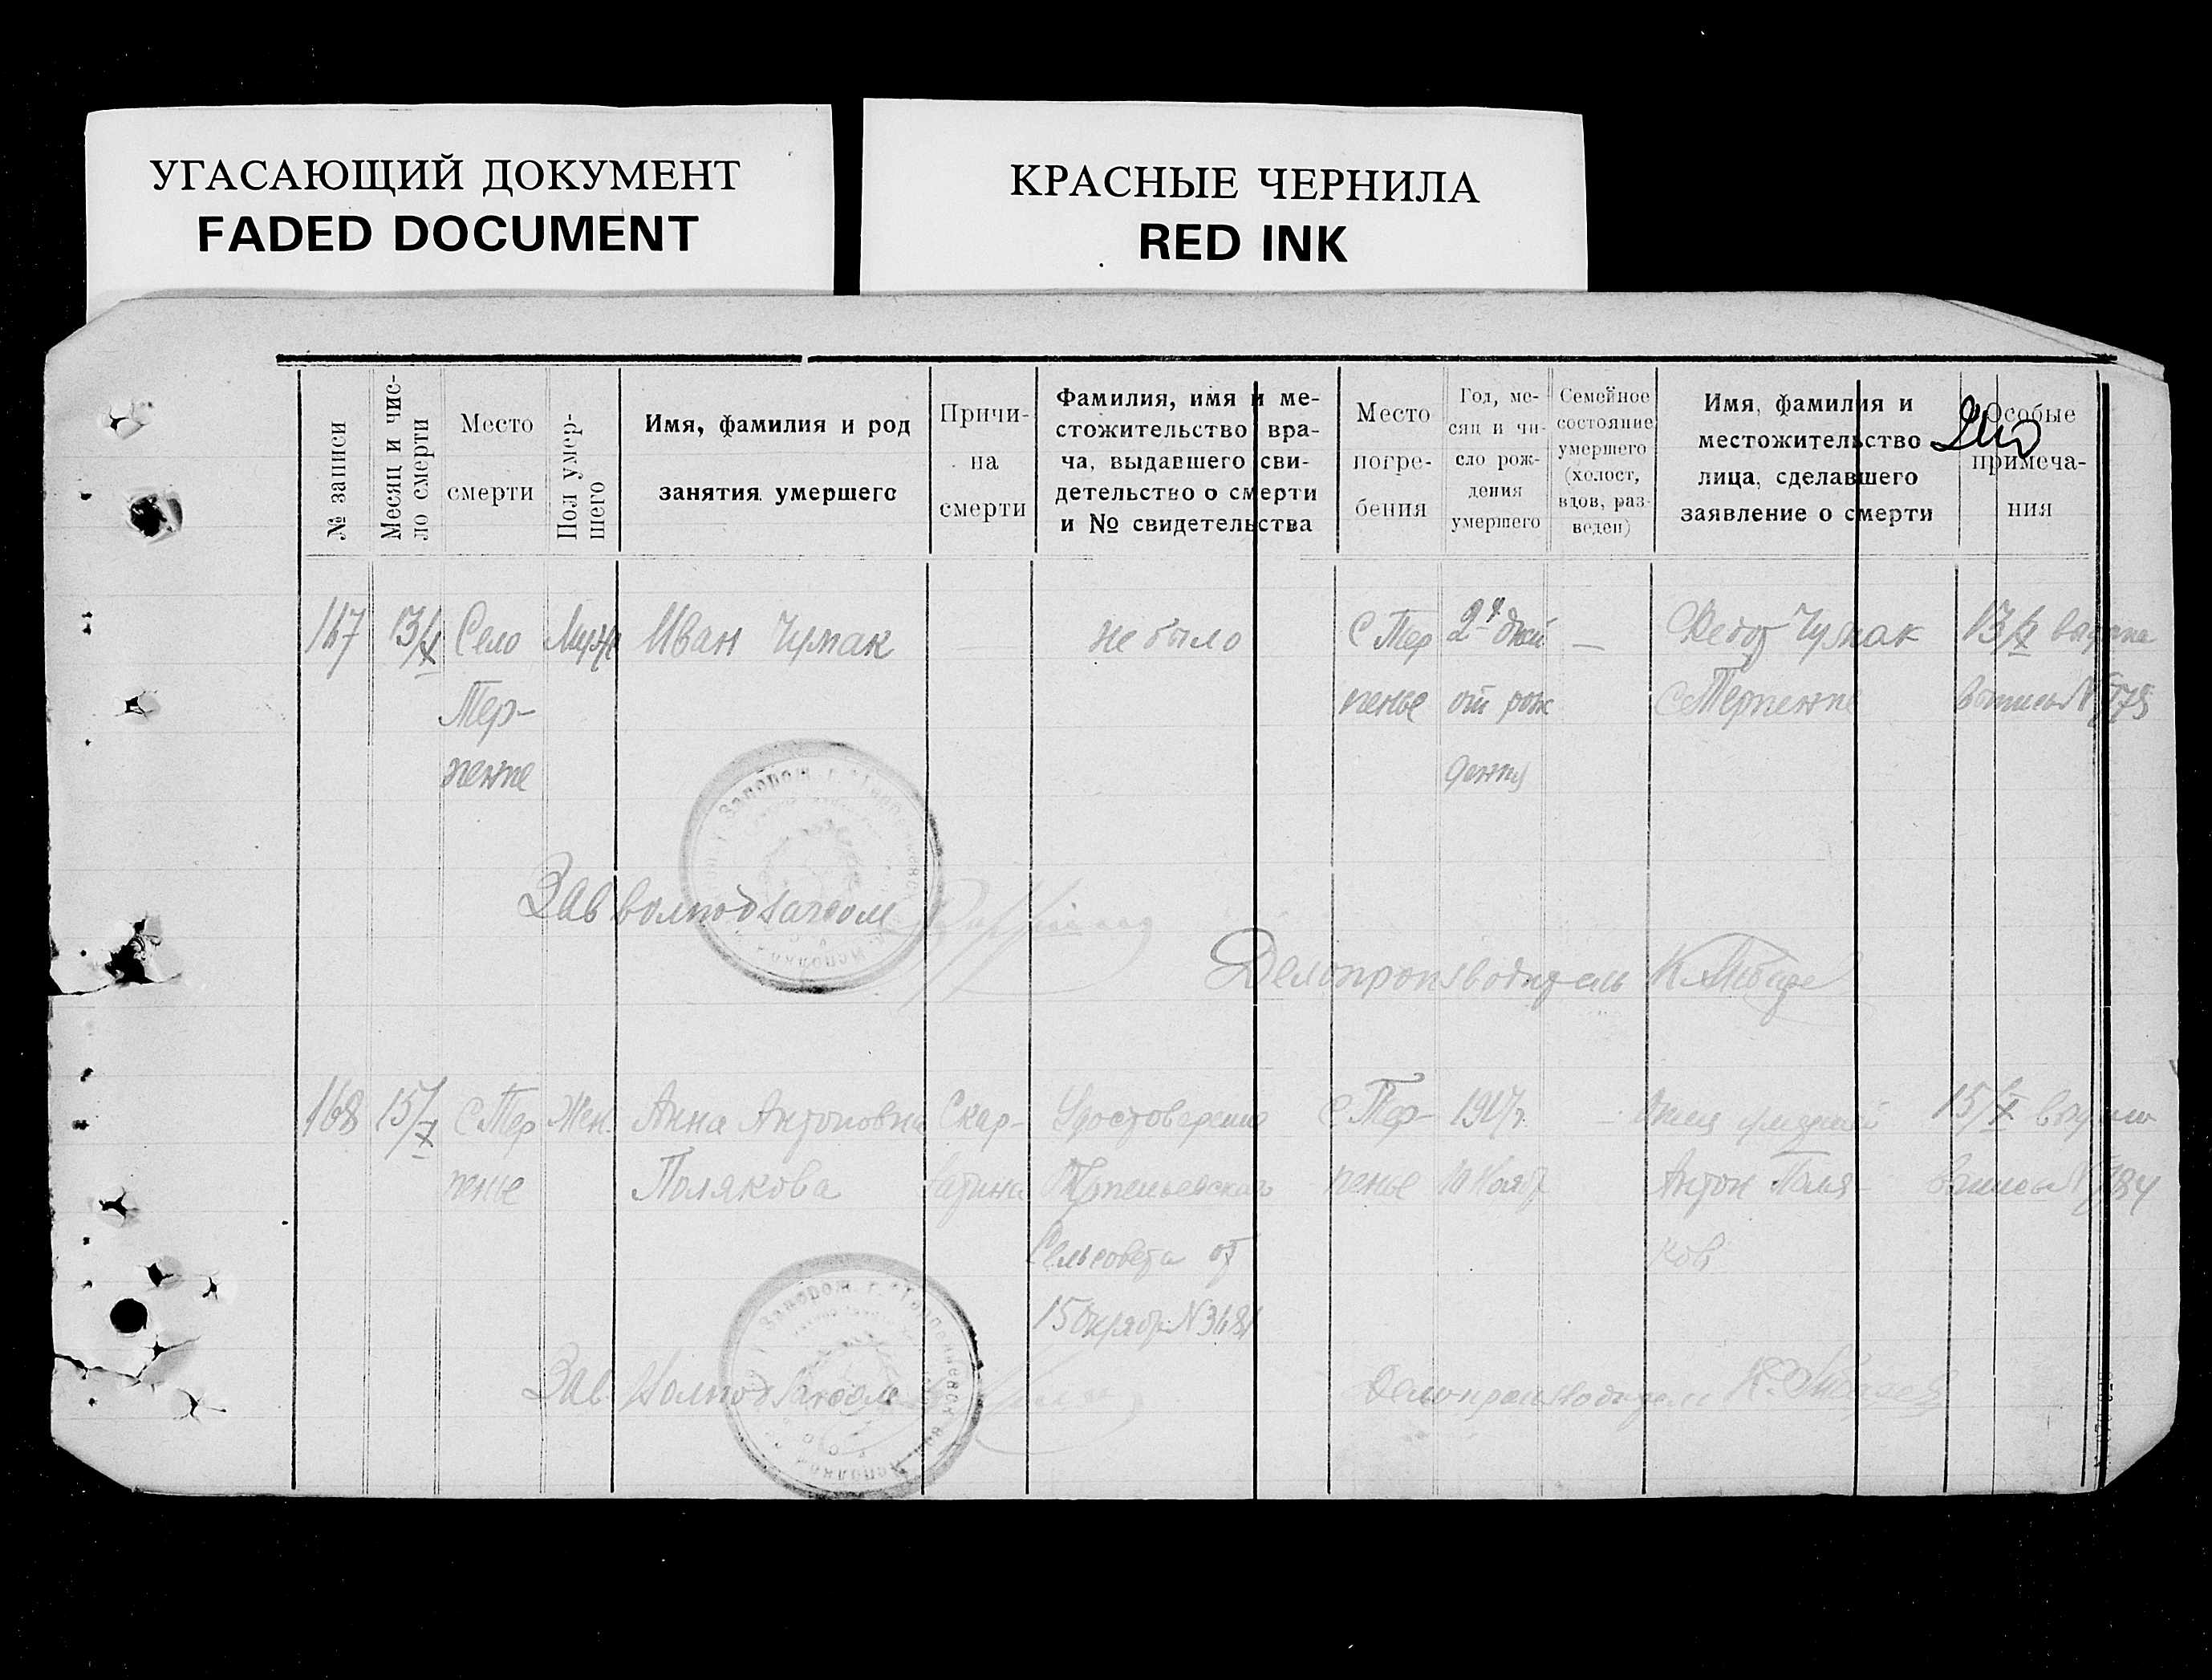 УГАСАЮЩИЙ ДОКУМЕНТ
FADED DOCUMENT
КРАСНЫЕ ЧЕРНИЛА
RED INK
№ записи
Месяц и чис-
ло смерти
Место
смерти
Пол умер-
шего
Имя, фамилия и род
занятия умершего
Причи-
на
смерти
Фамилия, имя и ме-
стожительство вра-
ча, выдавшего сви-
детельство о смерти
и № свидетельства
Место
погре-
бения
Год, ме-
сяц и чи-
сло рож-
дения
умершего
Семейное
состояние
умершего
(холост,
вдов, раз-
веден)
Имя, фамилия и
местожительство
лица, сделавшего
заявление о смерти
Особые
примеча-
ния
167
13/X
Село
Тер-
пение
Муж
Иван Чумак
не было
С Тер
пенье
2 дней
от рож
дения
Федот Чумак
С Терпение
13/X
выпись № 178
Зав волподзагсом
Делопроизводитель
168
15/X
С Тер
пенье
Жен.
Анна Антоновна
Полякова
Скар-
латина
Удостоверение
Терпеньевского
Сельсовета от
15 Октябр N 3681
С Тер-
пенье
1917г.
10 Нояб
Отец
Антон Поля-
ков
15/X
Зав Волподзагсом
Делопроизводитель
Запорож. г.
Исполком
Запорож. г.
Исполком